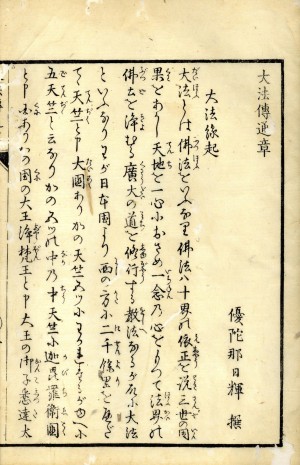 大法傳通章
優陀那日輝 撰
大法縁起
大法とは佛法をいふなり佛法ハ十界の依正を説三世の因
果をあかし天地を一心におさめ一念の心をもつて法界の
佛土を浄むる廣大の道を修行する教法なるがゆゑに大法
といふなりわが日本國より西の方に二千餘里を
て天竺と大國ありかの天竺五ツに
五天竺と云なりかの五ツの中の中天竺に迦毘羅衛國
と申国ありかの国の大王浄梵王と申大王の御子悉達太